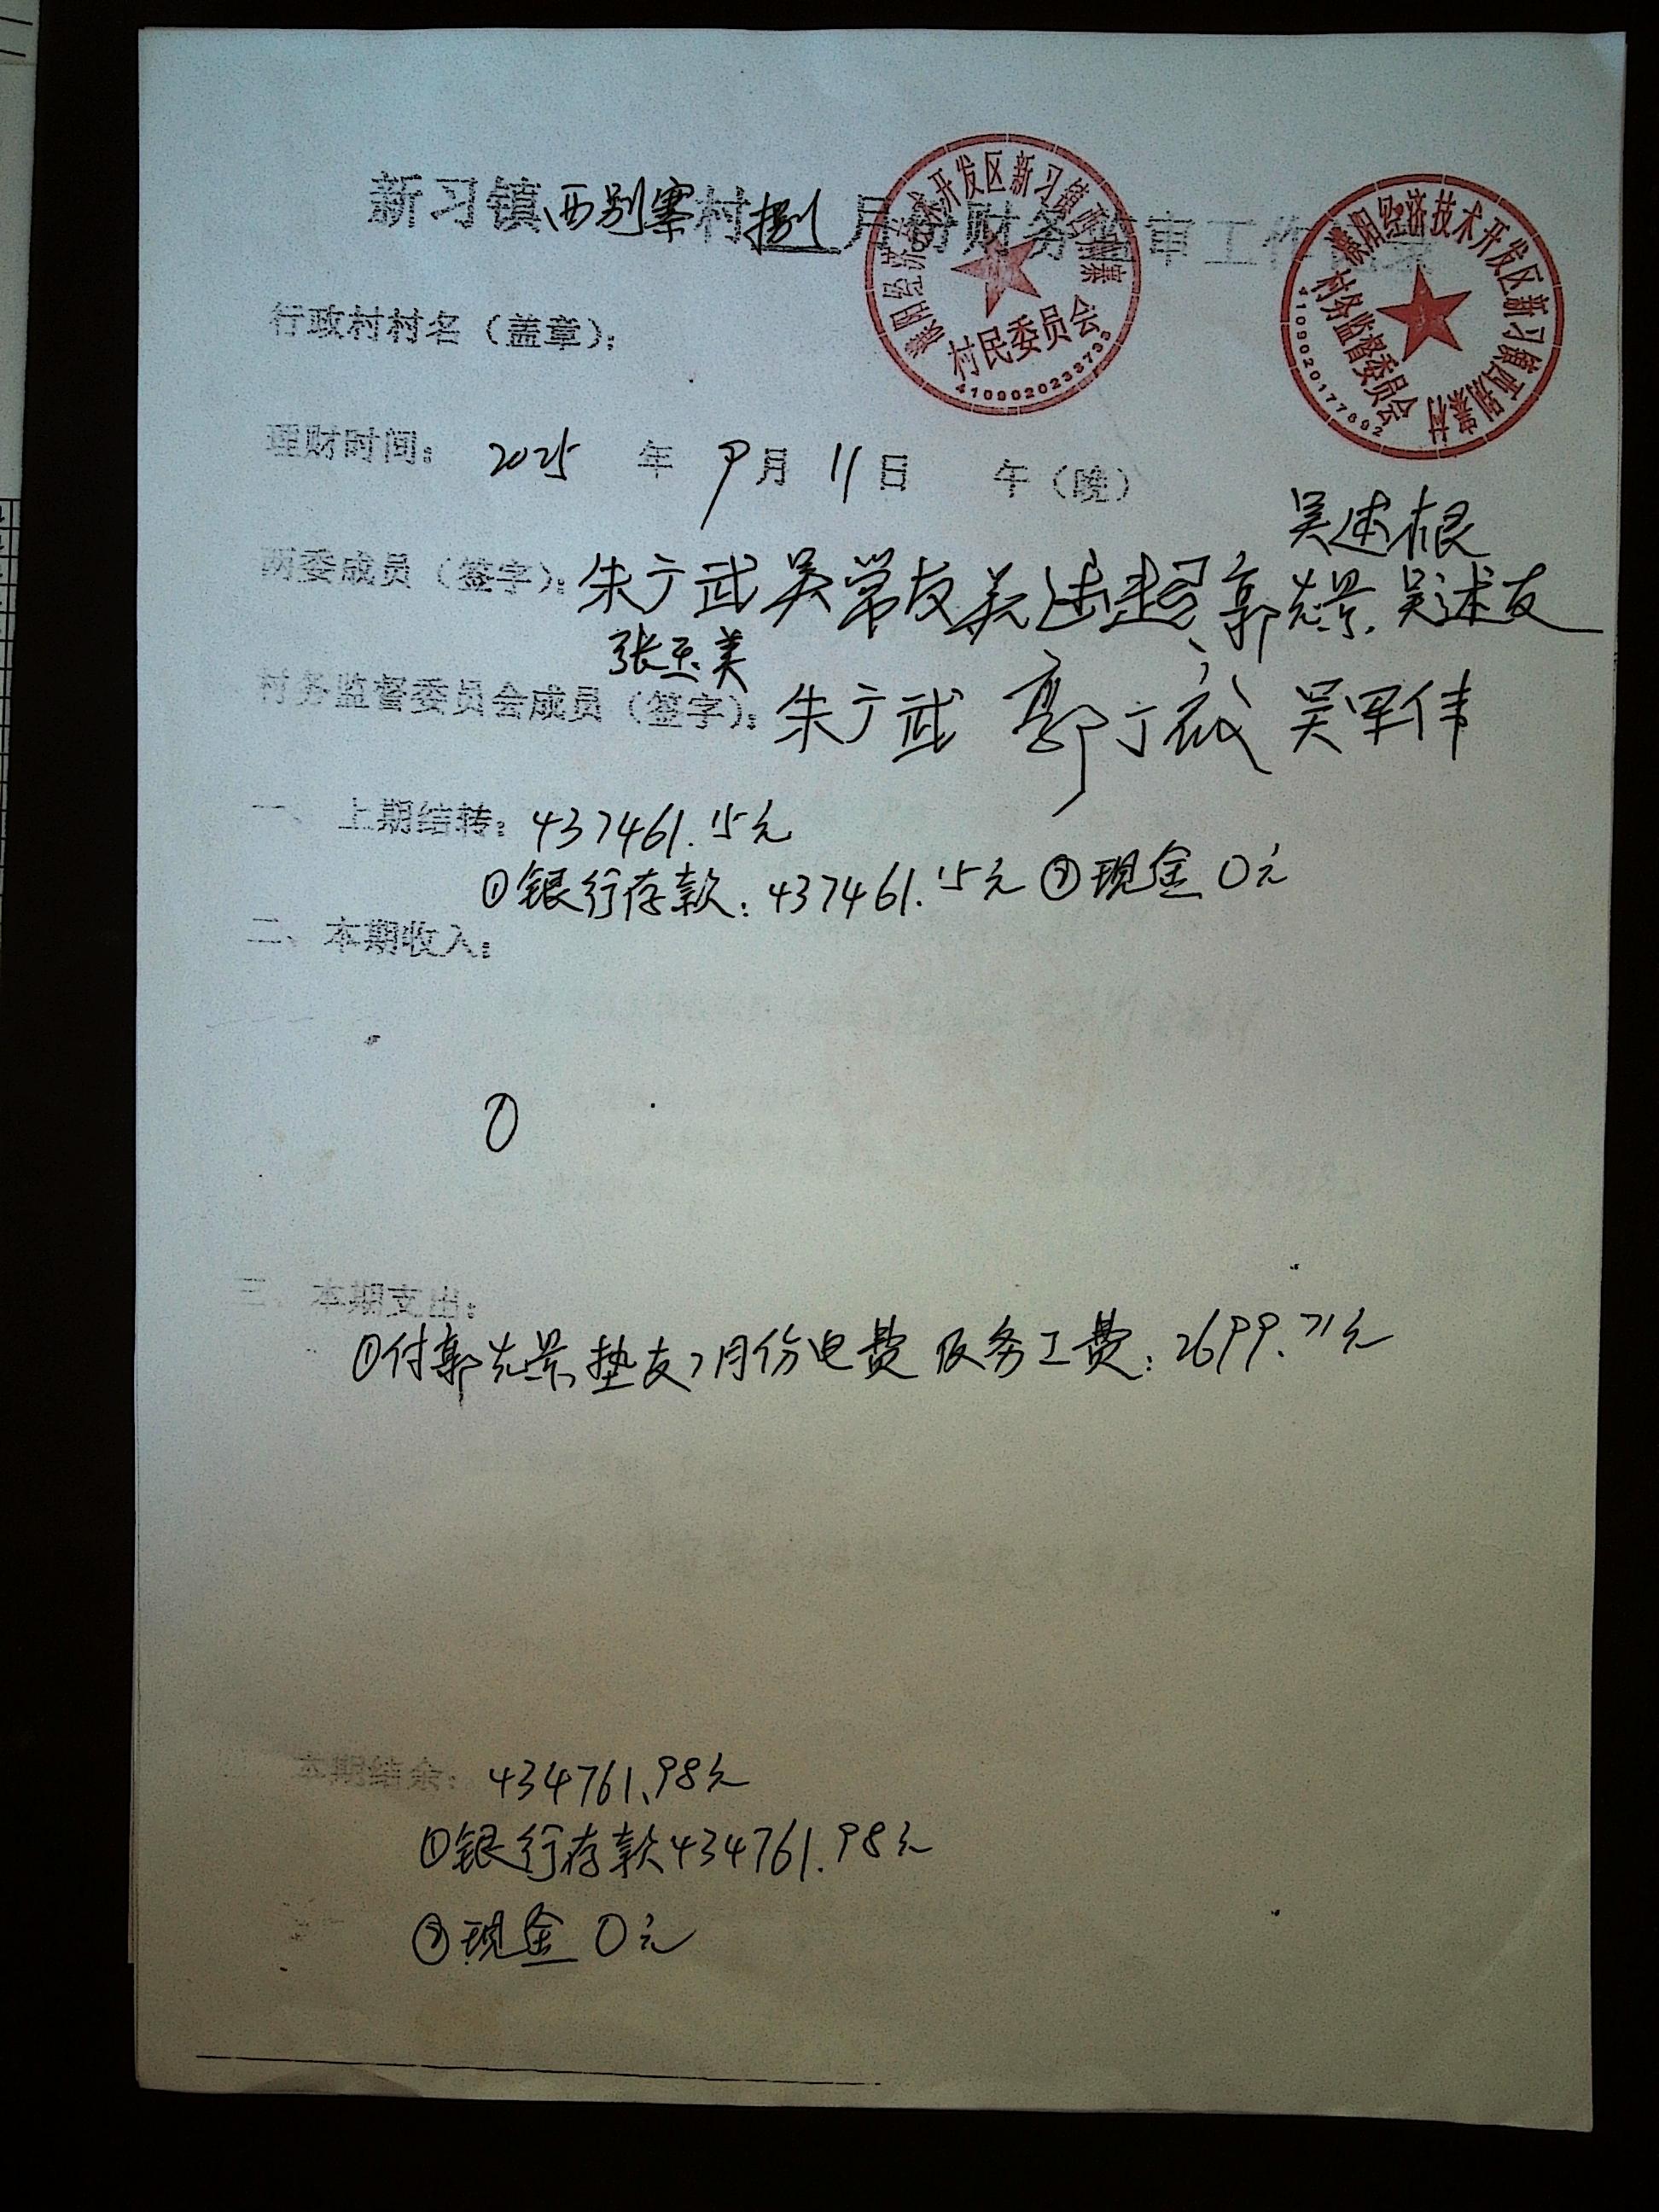 新习镇西别寨村捌月份财务监审工作记录
濮阳经济技术开发区新习镇西别寨
村民委员会
4109020233733
濮阳经济技术开发区新习镇西别寨村
村务监督委员会
4109020177692
行政村村名（盖章）：
理财时间： 2025 年 9月 11日 午（晚）
吴述根
两委成员（签字）：朱广武 吴常友 郭先景 吴述友
张玉美
村务监督委员会成员（签字）：朱广武 吴军伟
一、上期结转：437461.15元
①银行存款：437461.15元 ②现金 0元
二、本期收入：
0
三、本期支出：
①付郭先景垫支7月份电费及务工费：2699.71元
本期结余：434761.98元
①银行存款434761.98元
②现金 0元